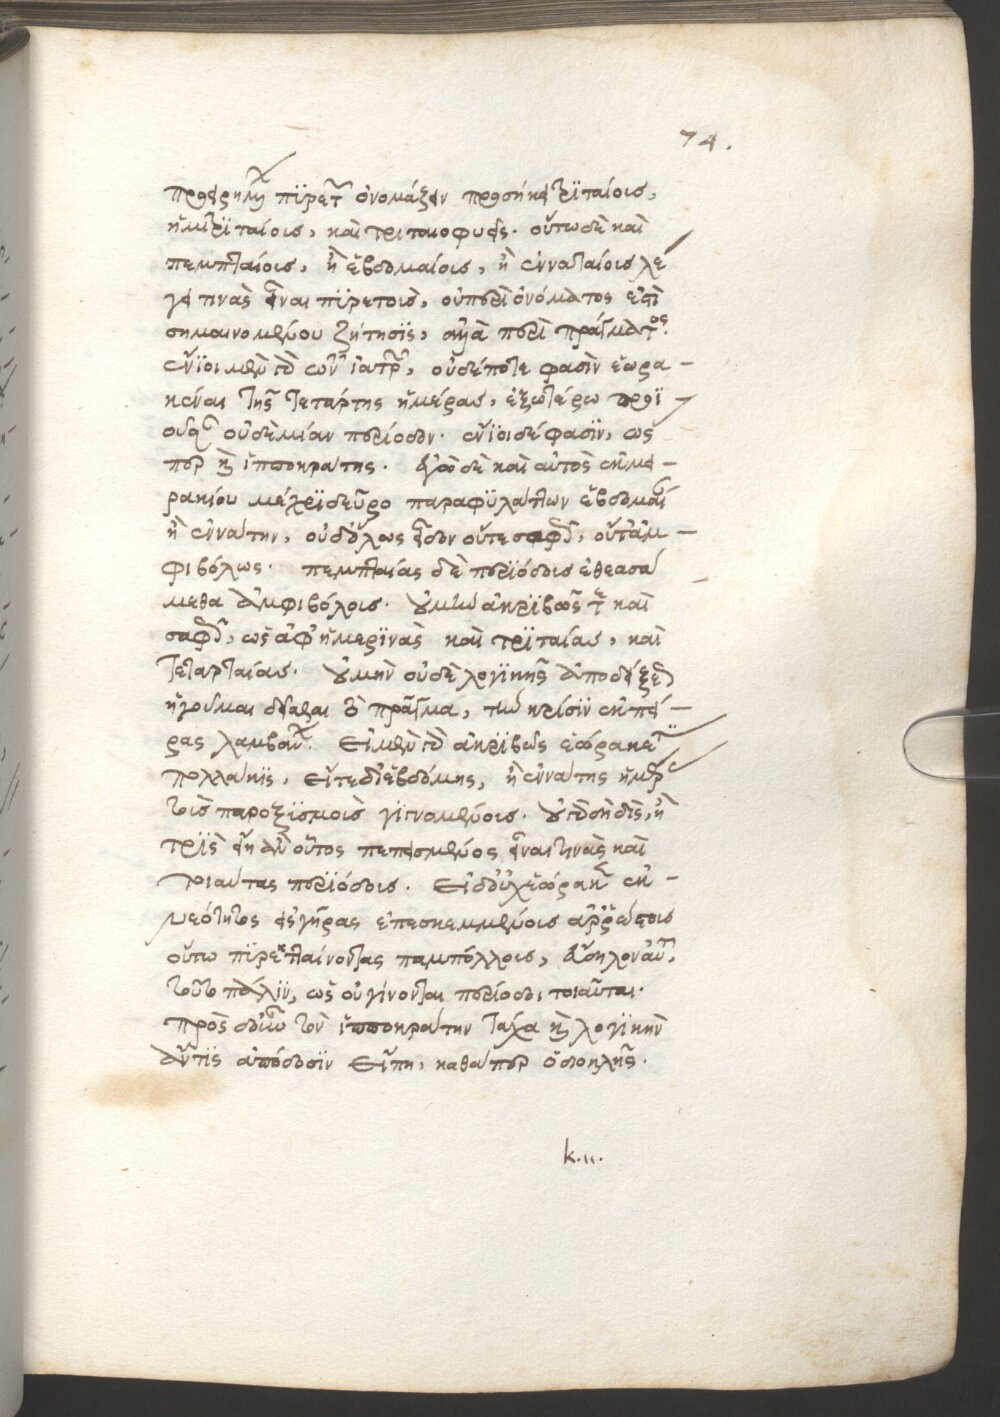 74.
προειρημένων πϊρετῶν ὀνομάζειν προσήκει τρϊταίοις,
ἡμϊτρϊταίοις, καὶ τριταιοφυεῖς. οὕτω δὲ καὶ
πεμπταίοις, ἢ ἑβδομαίοις, ἢ ἐνναταίοις λέ
γει τινὰς εἶναι πϊρετοὶς, οὐ περὶ ὀνόματος ἐστὶ
σημαινομένου ζήτησϊς, ἀλλὰ περὶ πράγματος.
ἔνϊοι μὲν τῶν ἰατρῶν, οὐδέποτε φασὶν ἑωρα –
κέναι τῆς τετάρτης ἡμέρας, ἐξωτέρω προϊ
οῦσαν οὐδεμίαν περίοδον. ἔνϊοι δέ φασϊν, ὥς
περ καὶ ἱπποκράτης. ἐγὼ δὲ καὶ αὐτὸς ἐκ με –
ρακίου μέχρϊ δεῦρο παραφϋλάττων ἑβδομαί
ἢ ἐννάτην, οὐδόλως εἶδον οὔτε σαφῶς, οὔτ' ἀμ –
φιβόλως. πεμπταίας δὲ περϊόδοις ἐθεασά
μεθα ἀμφιβόλοις. οὐ μὴν ἀκρϊβῶς γε καὶ
σαφῶς, ὡς ἀφ' ἡμερϊνὰς καὶ τρϊταίας, καὶ
τεταρταίας. οὐ μὴν οὐδὲ λογϊκῆς ἀποδείξεως
ἡγοῦμαι δεῖσθαι τὸ πρᾶγμα, τὴν κρίσϊν ἐκ πεί
ρας λαμβάνον. εἰ μὲν τῶν ἀκρϊβῶς ἑώρακε τις
πολλάκϊς, εἴτε δι' ἑβδόμης, ἢ ἐννάτης ἡμέρας
τοὶς παροξϊσμοὶς γϊνομένοις. οὐ τοῦ δὴ δὶς, ἢ
τρϊὶς εἴη ἂν οὗτος πεπεισμένος εἶναι τινὰς καὶ
τοιαύτας περϊόδοις. εἰ δ' οὐχ ἑώρακεν ἐκ –
νεότητος εἰς γῆρας ἐπεσκεμμένοις ἀρρώστοις
οὕτω πϊρεκταίνοντας παμπόλλοις, εὔδηλον αὐτῷ
τοῦτο πάλϊν, ὡς οὐ γίνονται περίοδοι τοιαῦται.
πρὸς δὲ οὖν τὸν ἱπποκράτην τάχα καὶ λογϊκὴν
ἄν τϊς ἀπόδοσϊν εἴπη, καθάπερ ὁ διοκλῆς.
k. ιι.